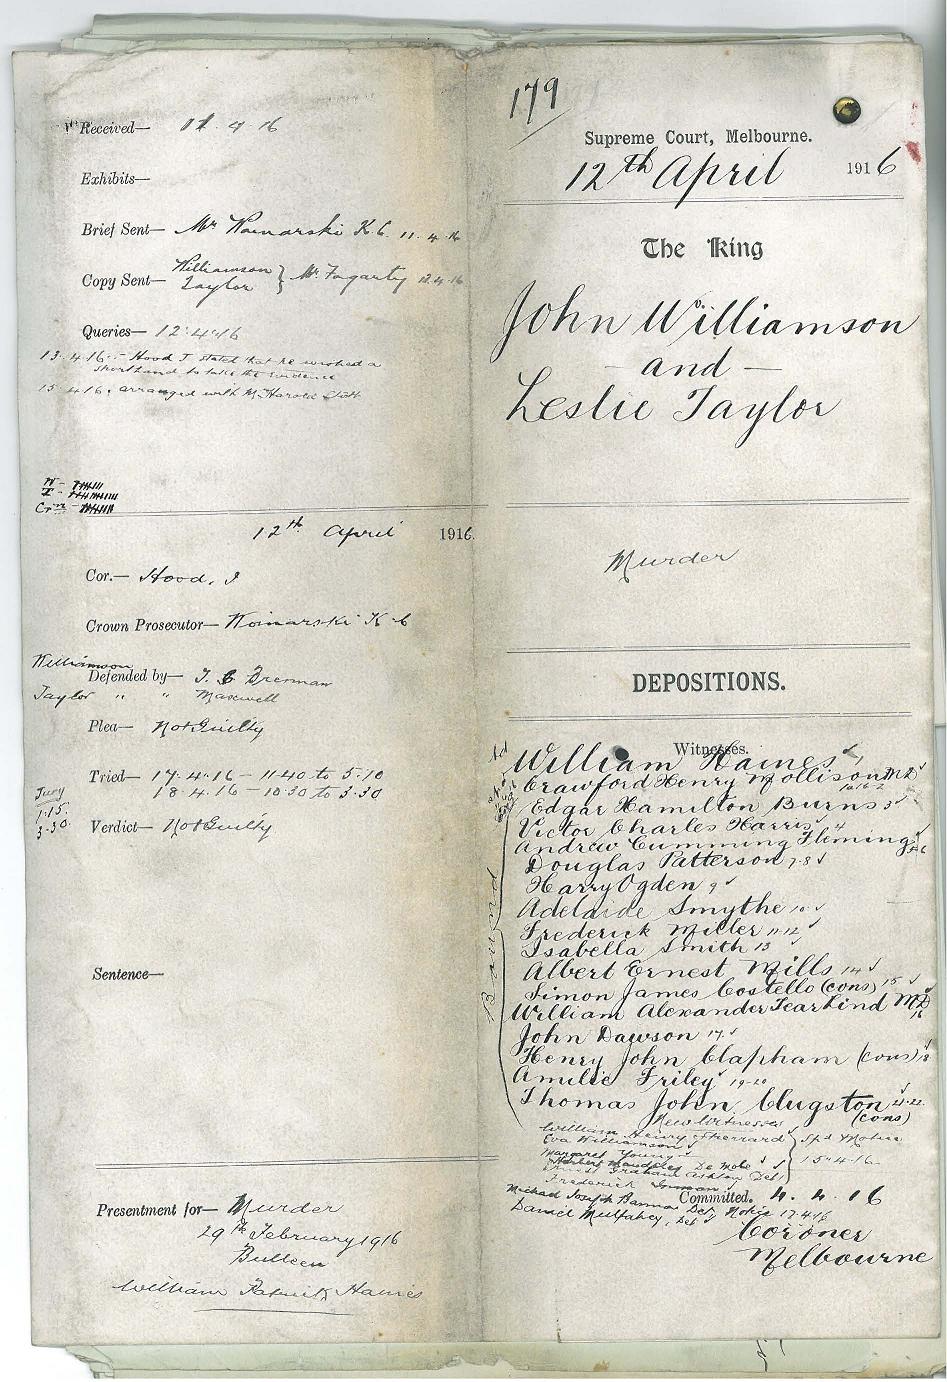 Received— 11.4.16
Exhibits—
Brief Sent— Mr Woinarski K.C. 11.4.16
Copy Sent— Williamson } Mr. Fogarty 12.4.16
Taylor
Queries— 12.4.16
13.4.16 - Hood J stated that he wished a
shorthand to take the evidence
15.4.16. arranged with Mr Harold
W -
T -
Crn -
12th April 1916.
Cor.— Hood, J
Crown Prosecutor— Woinarski K C
Williamson
Defended by— Brennan
Taylor " " Maxwell
Plea— Not Guilty
Tried— 17.4.16 — 11.40 to 5.10
18.4.16 — 10.30 to 3.30
Jury
1.15.
3.30.
Verdict— Not Guilty
Sentence—
Presentment for— Murder
29th February 1916
Bulleen
William Patrick Haines
179
Supreme Court, Melbourne.
12th April 1916
The King
John Williamson
— and —
Leslie Taylor
Murder
DEPOSITIONS.
Witnesses.
Bound
William Haines 1
Crawford Henry Mollison MD
Edgar Hamilton Burns 3
Victor Charles Harris 4
Andrew Cumming Fleming 5-6
Douglas Patterson 7-8
Harry Ogden 9
Adelaide Smythe 10
Frederick Miller 11-12
Isabella Smith 13
Albert Ernest Mills 14
Simon James Costello (cons) 15
William Alexander MD 16
John Dawson 17
Henry John Clapham (cons) 18
Amilie Friley 19-20
Thomas John Clugston 21-22
(cons)
New Witnesses
William Henry
Eva Williamson
Margaret Young
15.4.16
Ernest Graham Ashton Det
Frederick
Committed. 4.4.16
Michael Joseph Bannon Det Notice 17.4.16
Daniel Mulfahey, Det
Coroner
Melbourne